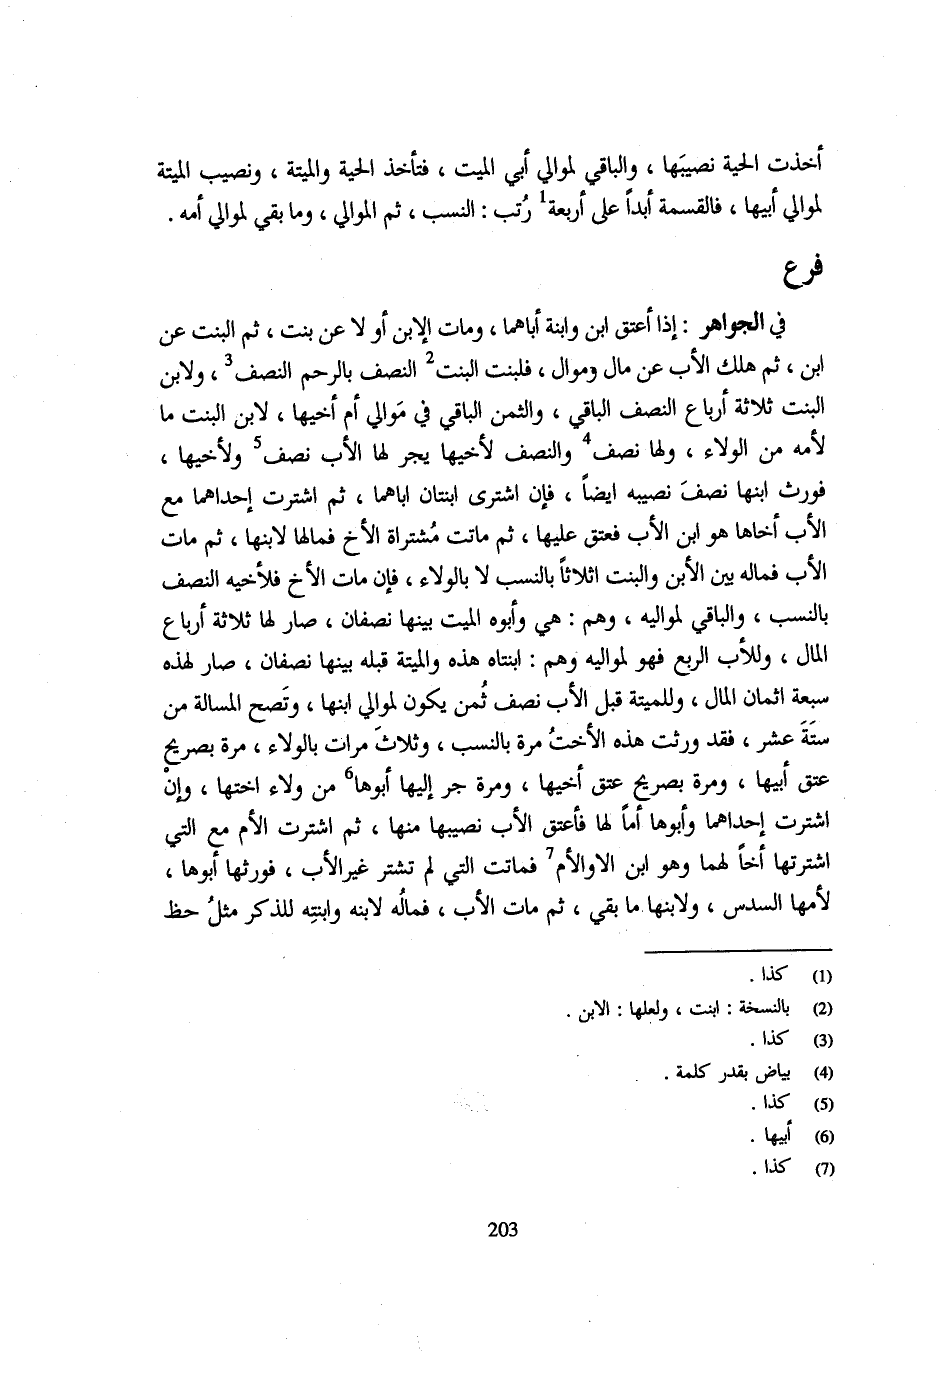 أخذت الحية نصيبَها ، والباقي لموالي أبي الميت ، فتأخذ الحية والميتة ، ونصيب الميتة
لموالي أبيها ، فالقسمة أبداً على أربعة1 رُتب : النسب ، ثم الموالي ، وما بقي لموالي أمه .
فرع
في الجواهر : إذا أعتق ابن وابنة أباهما ، ومات الإبن أو لا عن بنت ، ثم البنت عن
ابن ، ثم هلك الأب عن مال وموال ، فلبنت البنت2 النصف بالرحم النصف3 ، ولابن
البنت ثلاثة أرباع النصف الباقي ، والثمن الباقي في مَوالي أم أخيها ، لابن البنت ما
لأمه من الولاء ، ولها نصف4 والنصف لأخيها يجر لها الأب نصف5 ولأخيها ،
فورث ابنها نصفَ نصيبه ايضاً ، فإن اشترى ابنتان اباهما ، ثم اشترت إحداهما مع
الأب أخاها هو ابن الأب فعتق عليها ، ثم ماتت مُشتراة الأخ فمالها لابنها ، ثم مات
الأب فماله بين الأبن والبنت اثلاثاً بالنسب لا بالولاء ، فإن مات الأخ فلأخيه النصف
بالنسب ، والباقي لمواليه ، وهم : هي وأبوه الميت بينها نصفان ، صار لها ثلاثة أرباع
المال ، وللأب الربع فهو لمواليه وهم : ابنتاه هذه والميتة قبله بينها نصفان ، صار لهذه
سبعة اثمان المال ، وللميتة قبل الأب نصف ثُمن يكون لموالي ابنها ، وتَصح المسالة من
ستَةَ عشر ، فقد ورثت هذه الأختُ مرة بالنسب ، وثلاثَ مرات بالولاء ، مرة بصريح
عتق أبيها ، ومرة بصريح عتق أخيها ، ومرة جر إليها أبوها6 من ولاء اختها ، وإنْ
اشترت إحداهما وأبوها أماً لها فأعتق الأب نصيبها منها ، ثم اشترت الأم مع التي
اشترتها أخاً لهما وهو ابن الاوالأم7 فماتت التي لم تشتر غيرالأب ، فورثها أبوها ،
لأمها السدس ، ولابنها ما بقي ، ثم مات الأب ، فمالُه لابنه وابنتِه للذكر مثلُ حظ
(1) كذا .
(2) بالنسخة : ابنت ، ولعلها : الابن .
(3) كذا .
(4) بياض بقدر كلمة .
(5) كذا .
(6) أبيها .
(7) كذا .
203